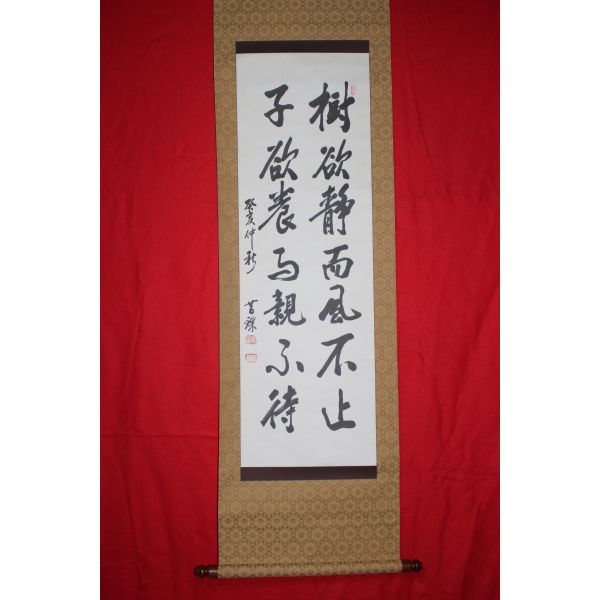 樹欲静而風不止
子欲養而親不待
癸亥仲秋